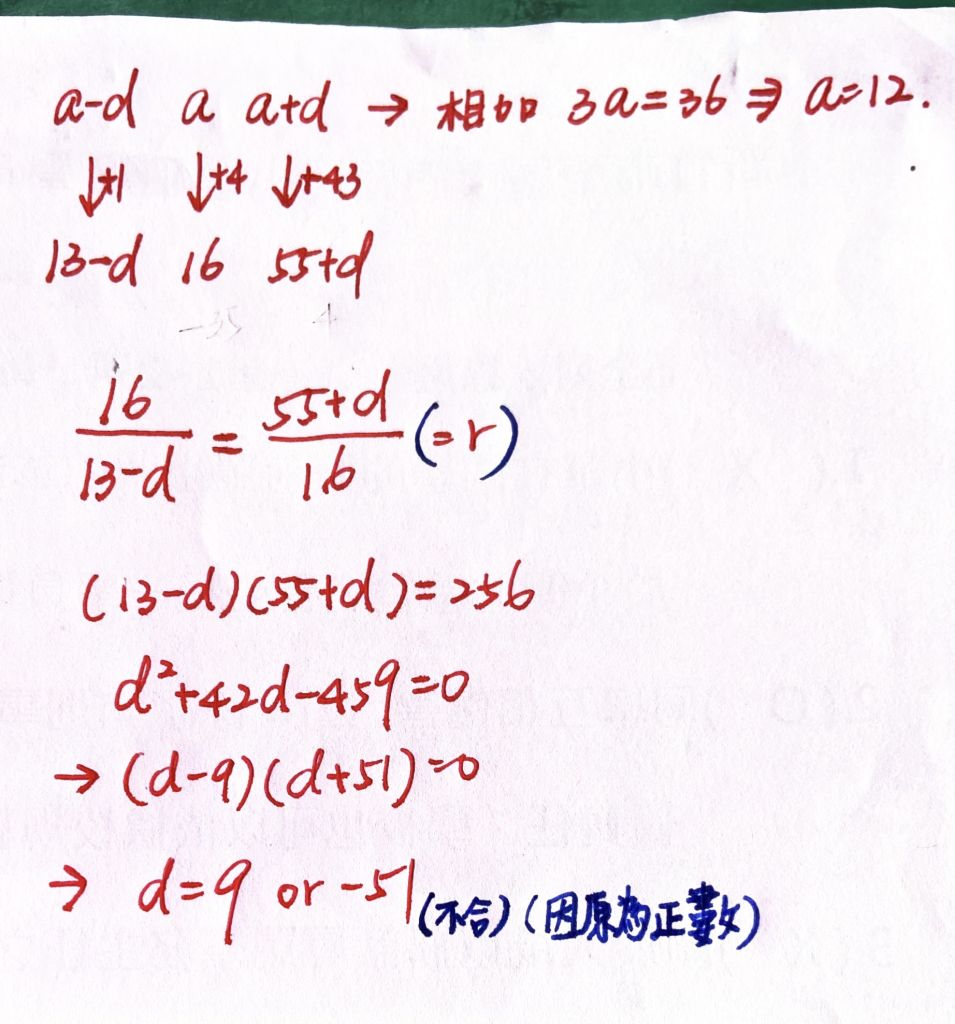 a-d a a+d → 相加 3a=36 ⇒ a=12.
↓+1 ↓+4 ↓+43
13-d 16 55+d
16/13-d = 55+d/16 (=r)
(13-d)(55+d)=256
d²+42d-459=0
→ (d-9)(d+51)=0
→ d=9 or -51 (不合) (因原為正數)